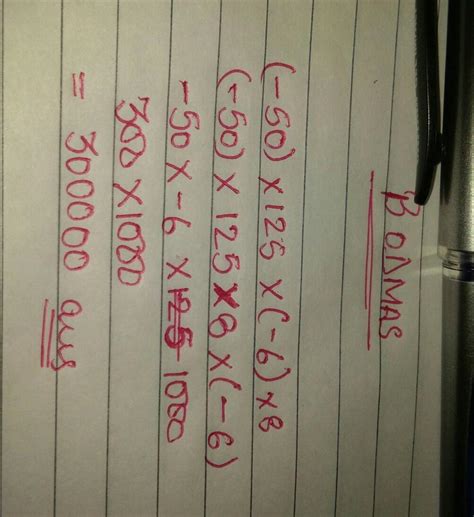 BODMAS
(-50) × 125 × (-6) × 8
(-50) × 125 × 8 × (-6)
-50 × -6 × 125 1000
300 × 1000
= 300000 ans